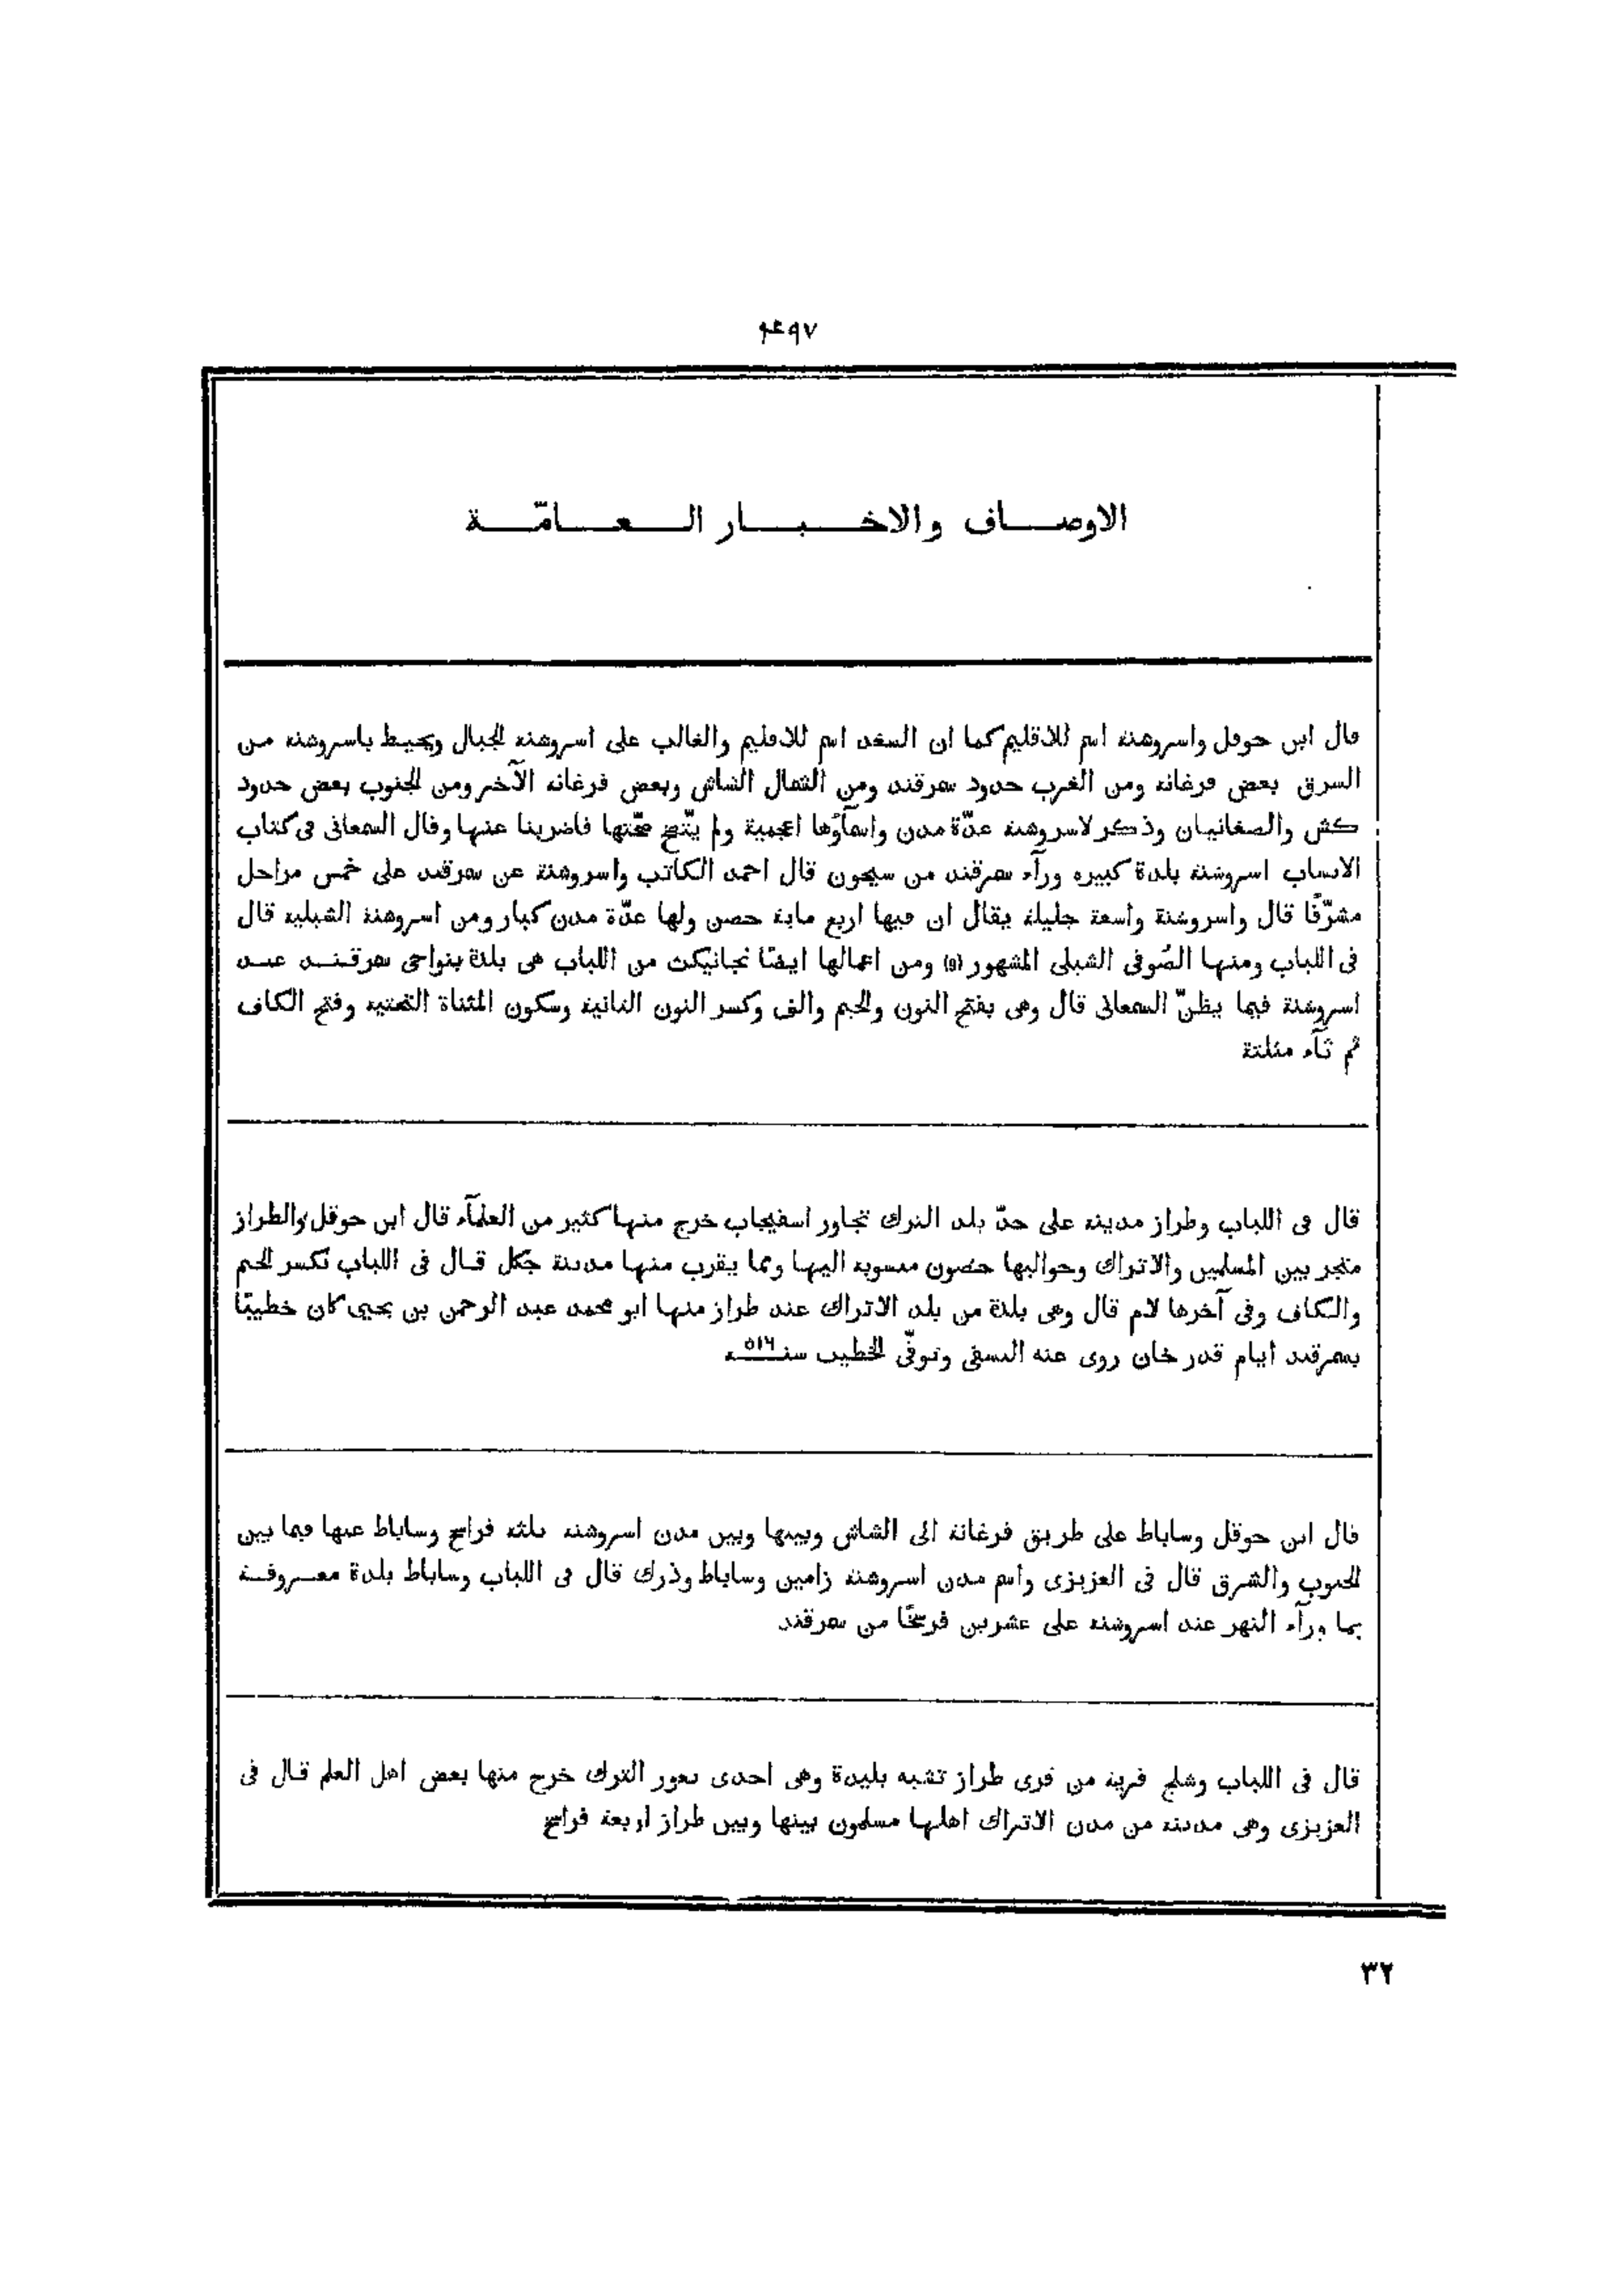 ۴۹۷
الاوصاف والاخبار العامّة
قال ابن حوقل واسروشنة اسم للاقليم كما ان السغد اسم للاقليم والغالب على اسروشنة الجبال ويحيط باسروشنة من
الشرق بعض فرغانة ومن الغرب حدود سمرقند ومن الشمال الشاش وبعض فرغانة الآخر ومن الجنوب بعض حدود
كش والصغانيان وذكر لاسروشنة عدّة مدن واسمآؤها اعجمية ولم يتّضح صحّتها فاضربنا عنها وقال السمعانى فى كتاب
الانساب اسروشنة بلدة كبيرة ورآء سمرقند من سيحون قال احمد الكاتب واسروشنة عن سمرقند على خمس مراحل
مشرّقًا قال واسروشنة واسعة جليلة يقال ان فيها اربع ماية حصن ولها عدّة مدن كبار ومن اسروشنة الشبلية قال
فى اللباب ومنها الصُوفى الشبلى المشهور (٥) ومن اعمالها ايضًا نجانيكث من اللباب هى بلدة بنواحى سمرقند عند
اسروشنة فيما يظنّ السمعانى قال وهى بفتح النون والجيم والف وكسر النون الثانية وسكون المثناة التحتية وفتح الكاف
ثم ثآء مثلثة
قال فى اللباب وطراز مدينة على حدّ بلد الترك تجاور اسفيجاب خرج منها كثير من العلمآء قال ابن حوقل والطراز
متجر بين المسلمين والاتراك وحواليها حصون منسوبة اليها ومما يقرب منها مدينة جكل قال فى اللباب بكسر الجيم
والكاف وفى آخرها لام قال وهى بلدة من بلد الاتراك عند طراز منها ابو محمد عبد الرحمن بن يحيى كان خطيبًا
بسمرقند ايام قدر خان روى عنه النسفى وتوفّى الخطيب سنة ٥١٦
قال ابن حوقل وساباط على طريق فرغانة الى الشاش وبينها وبين مدن اسروشنة ثلثة فراسخ وساباط عنها فيما بين
الجنوب والشرق قال فى العزيزى واسم مدن اسروشنة زامين وساباط وذرك قال فى اللباب وساباط بلدة معروفة
بما ورآء النهر عند اسروشنة على عشرين فرسخًا من سمرقند
قال فى اللباب وشلج قرية من قرى طراز تشبه بليدة وهى احدى ثغور الترك خرج منها بعض اهل العلم قال فى
العزيزى وهى مدينة من مدن الاتراك اهلها مسلمون بينها وبين طراز اربعة فراسخ
٣٢